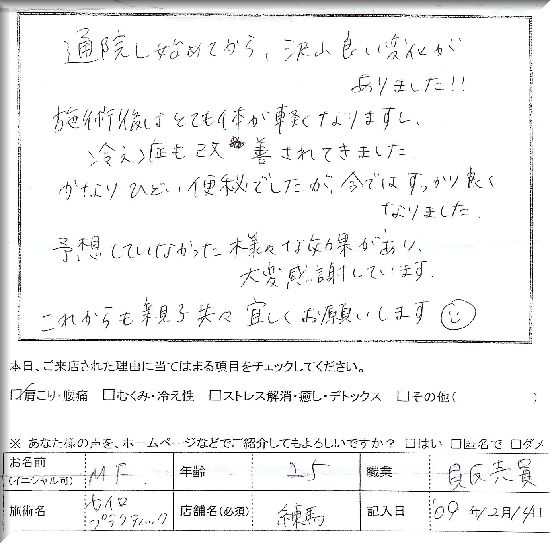 通院し始めてから、沢山良い変化が
ありました!!
施術後はとても体が軽くなりますし、
冷え症も改善されてきました
かなりひどい便秘でしたが、今ではすっかり良く
なりました。
予想していなかった様々な効果があり、
大変感謝しています。
これからも親子共々宜しくお願いします
本日、ご来店された理由に当てはまる項目をチェックしてください。
☑肩こり・腰痛 □むくみ・冷え性 □ストレス解消・癒し・デトックス □その他( )
※ あなた様の声を、ホームページなどでご紹介してもよろしいですか? □はい □匿名で □ダメ
お名前 (イニシャル可) M F. 年齢 25 職業
施術名 カイロプラクティック 店舗名(必須) 練馬 記入日 '09 年12月14日